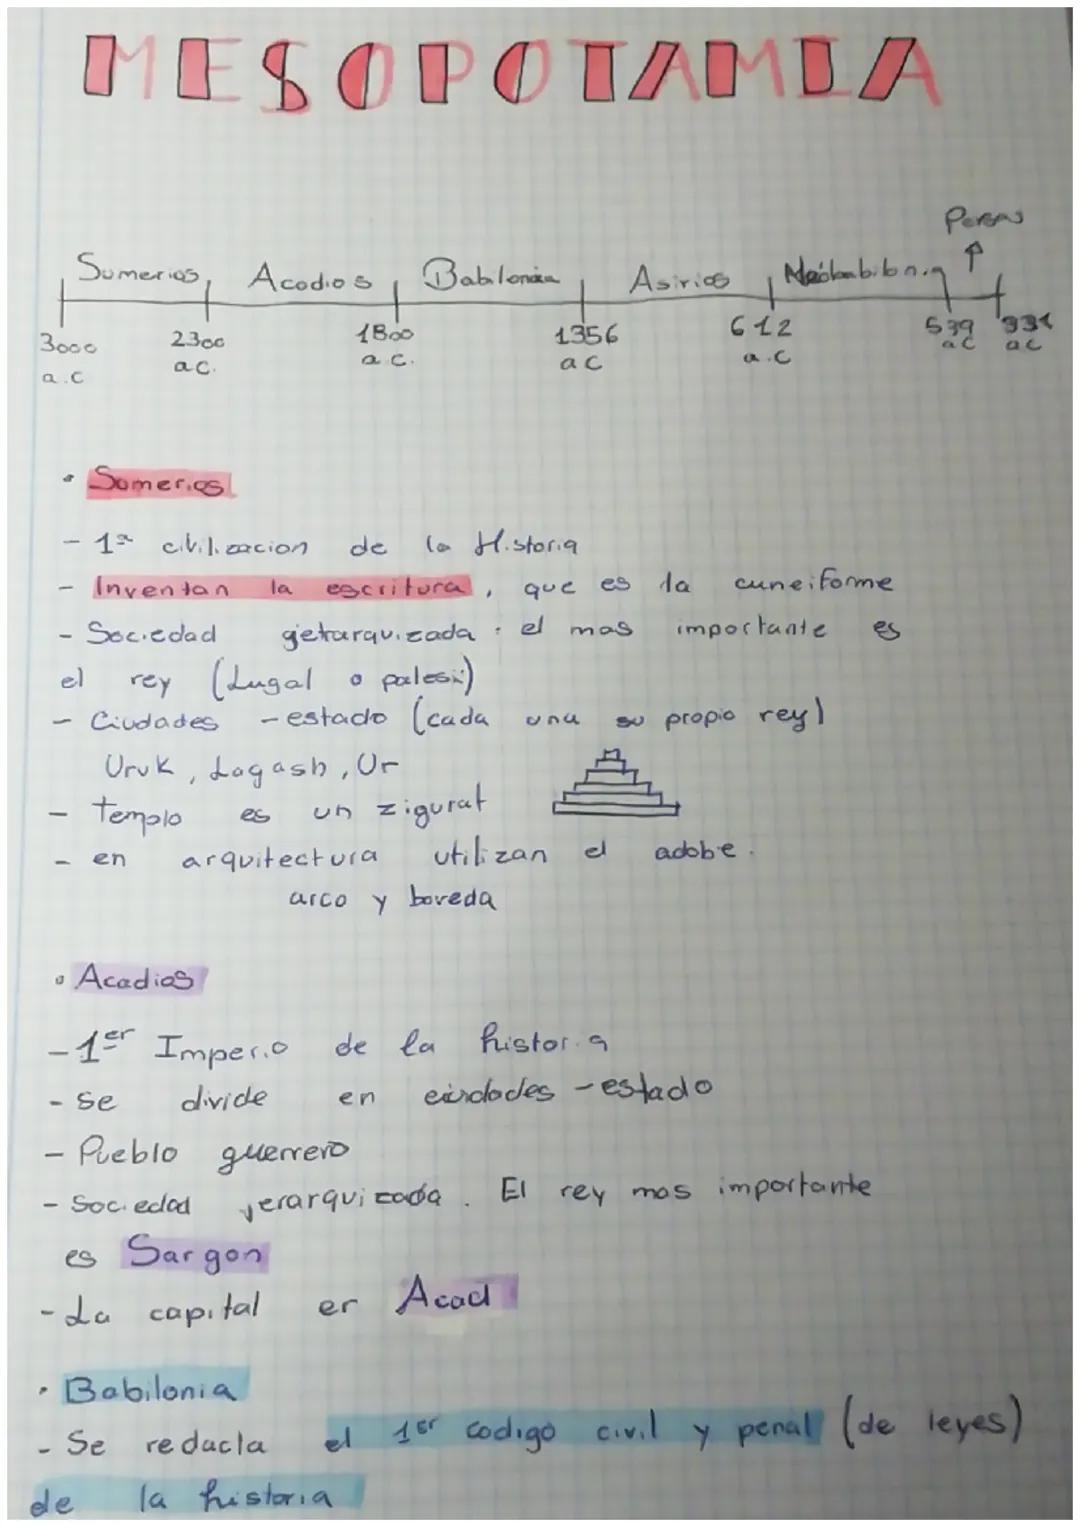 MESOPOTAMIA
Persas
Sumerios Acadios Babilonia Asirios Neobabilon.a
3000 a.c 2300 a.c. 1800 a.c. 1356 a c 612 a.c 539 a c 331 a c
• Sumerios
- 1ª civilizacion de la Historia
- Inventan la escritura, que es la cuneiforme
- Sociedad jerarquizada: el mas importante es
el rey (Lugal o palesi)
- Ciudades -estado (cada una su propio rey)
Uruk, Lagash, Ur
- Templo es un zigurat
- en arquitectura utilizan el adobe.
arco y boveda
• Acadios
- 1er Imperio de la historia
- se divide en ciudades -estado
- Pueblo guerrero
- Sociedad jerarquizada. El rey mas importante
es Sargon
- La capital er Acad
• Babilonia
- Se redacta el 1er codigo civil y penal (de leyes)
de la historia